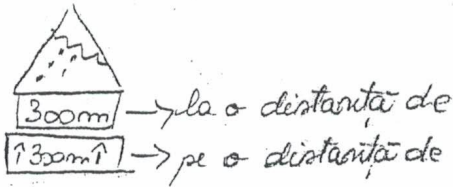 300m → la o distanță de
↑300m↑ → pe o distanță de